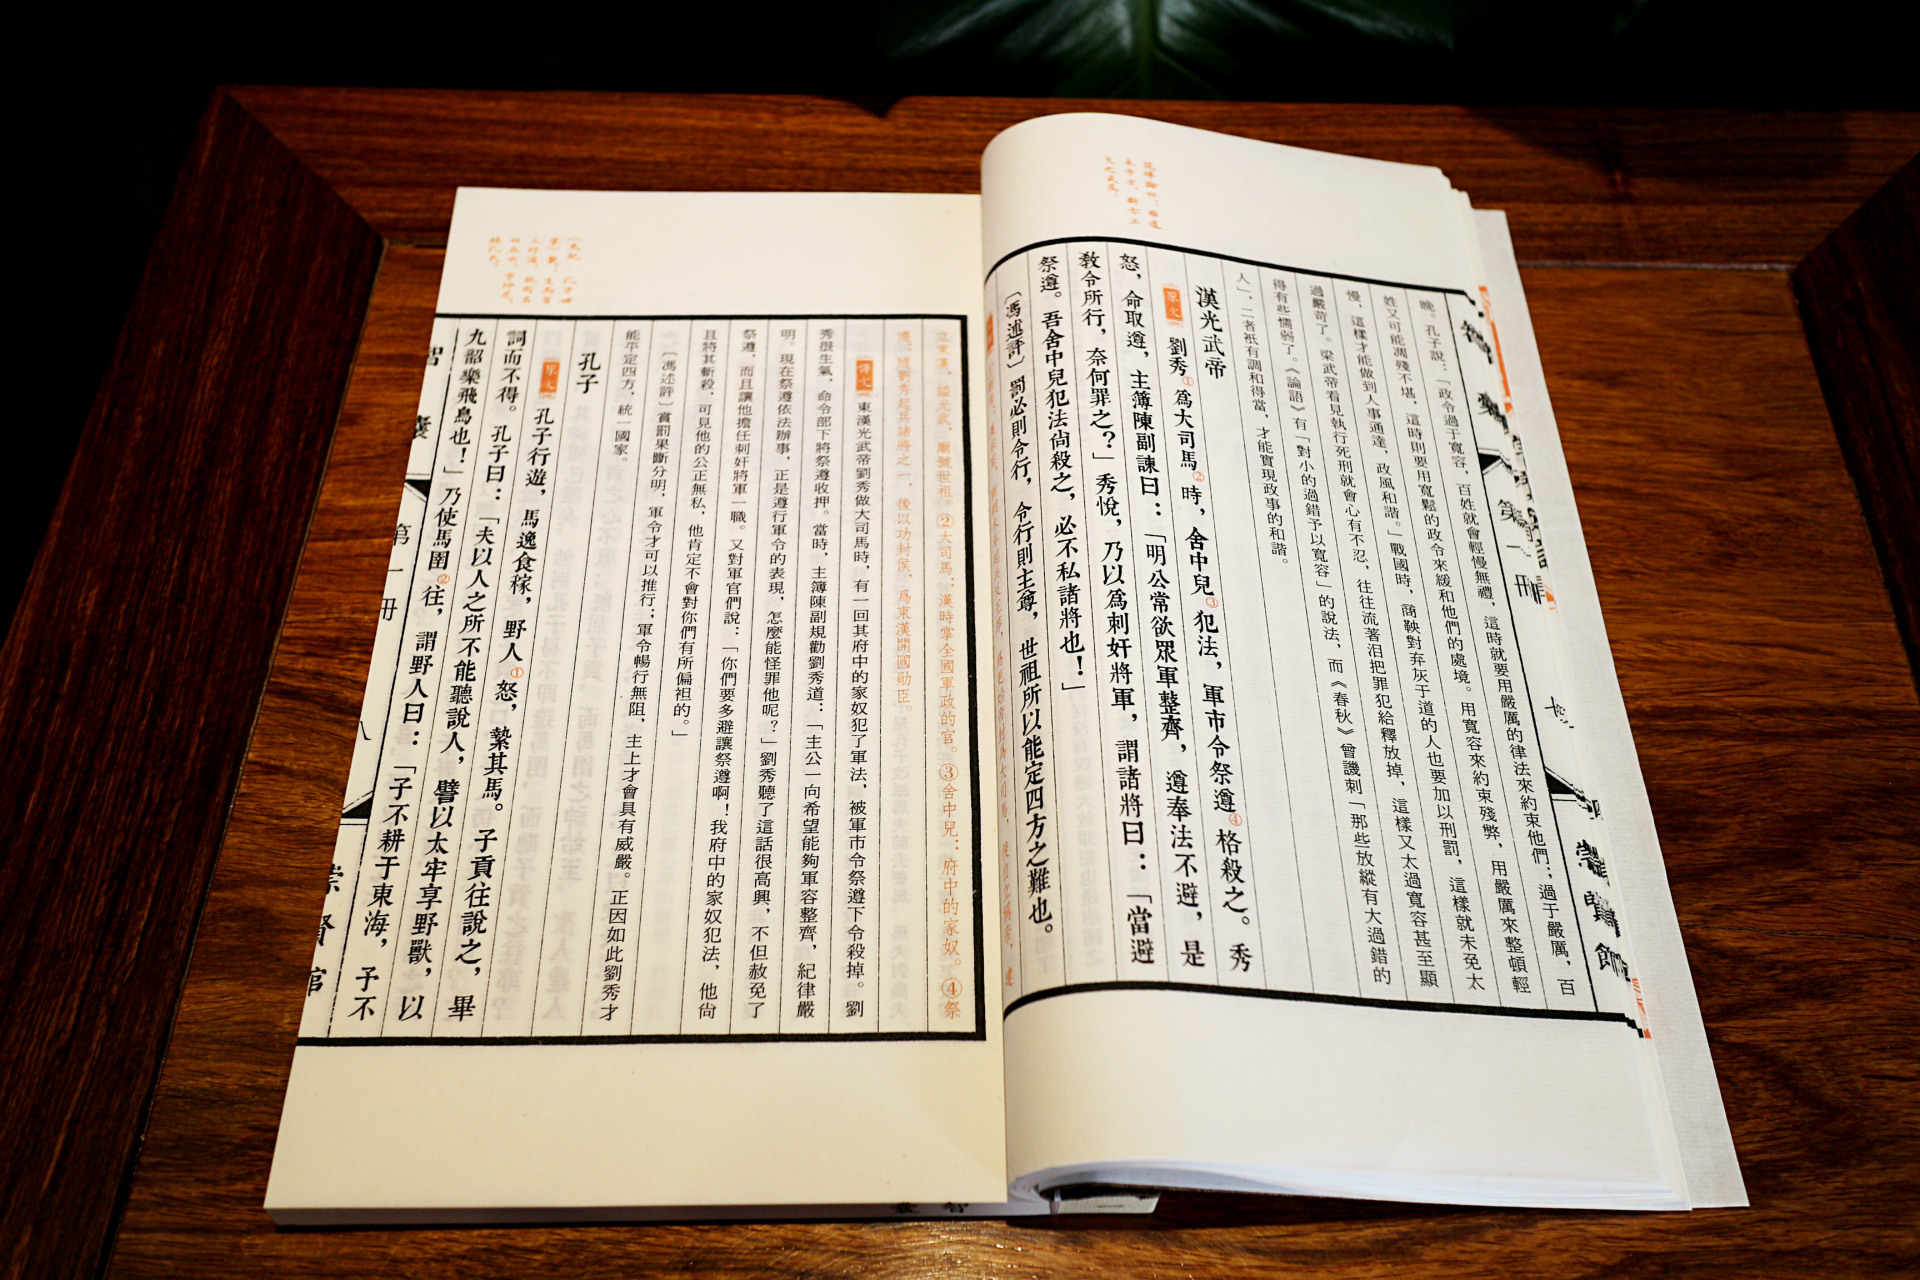 晚。孔子說：「政令過于寬容，百姓就會輕慢無禮，這時就要用嚴厲的律法來約束他們；過于嚴厲，百
姓又可能凋殘不堪，這時則要用寬鬆的政令來緩和他們的處境。用寬容來約束殘弊，用嚴厲來整頓輕
慢，這樣才能做到人事通達，政風和諧。」戰國時，商鞅對弃灰于道的人也要加以刑罰，這樣就未免太
過嚴苛了。梁武帝看見執行死刑就會心有不忍，往往流著泪把罪犯給釋放掉，這樣又太過寬容甚至顯
得有些懦弱了。《論語》有「對小的過錯予以寬容」的說法，而《春秋》曾譏刺「那些放縱有大過錯的
人」，二者衹有調和得當，才能實現政事的和諧。
漢光武帝
原文 劉秀①爲大司馬②時，舍中兒③犯法，軍市令祭遵④格殺之。秀
怒，命取遵，主簿陳副諫曰：「明公常欲眾軍整齊，遵奉法不避，是
教令所行，奈何罪之？」秀悅，乃以爲刺奸將軍，謂諸將曰：「當避
祭遵。吾舍中兒犯法尚殺之，必不私諸將也！」
〔馮述評〕罰必則令行，令行則主尊，世祖所以能定四方之難也。
立東漢，謚光武，廟號世祖。②大司馬：漢時掌全國軍政的官。③舍中兒：府中的家奴。④祭
遵：隨劉秀起兵諸將之一，後以功封侯，爲東漢開國勛臣。
譯文 東漢光武帝劉秀做大司馬時，有一回其府中的家奴犯了軍法，被軍市令祭遵下令殺掉。劉
秀很生氣，命令部下將祭遵收押。當時，主簿陳副規勸劉秀道：「主公一向希望能夠軍容整齊，紀律嚴
明。現在祭遵依法辦事，正是遵行軍令的表現，怎麼能怪罪他呢？」劉秀聽了這話很高興，不但赦免了
祭遵，而且讓他擔任刺奸將軍一職。又對軍官們說：「你們要多避讓祭遵啊！我府中的家奴犯法，他尚
且將其斬殺，可見他的公正無私，他肯定不會對你們有所偏袒的。」
〔馮述評〕賞罰果斷分明，軍令才可以推行；軍令暢行無阻，主上才會具有威嚴。正因如此劉秀才
能平定四方，統一國家。
孔子
原文 孔子行遊，馬逸食稼，野人①怒，縶其馬。子貢往說之，畢
詞而不得。孔子曰：「夫以人之所不能聽說人，譬以太牢享野獸，以
九韶樂飛鳥也！」乃使馬圉②往，謂野人曰：「子不耕于東海，子不
智囊 第一冊 八 崇賢館
智囊